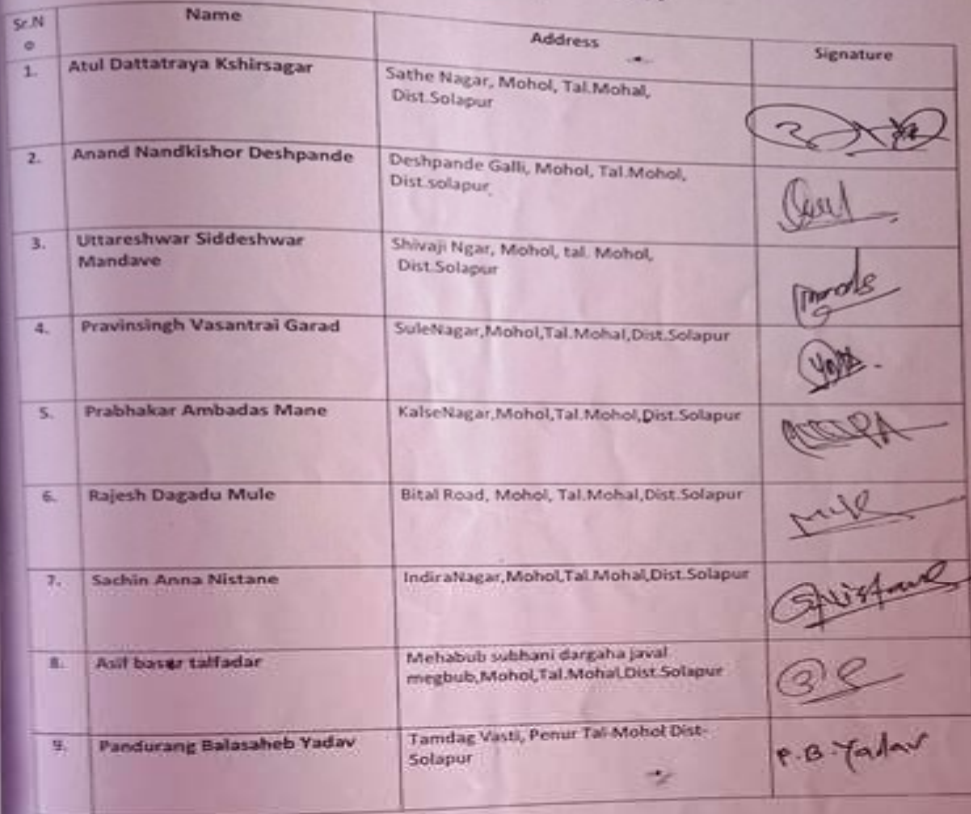 Sr.N
o
Name
Address
Signature
1.
Atul Dattatraya Kshirsagar
Sathe Nagar, Mohol, Tal.Mohal,
Dist.Solapur
2.
Anand Nandkishor Deshpande
Deshpande Galli, Mohol, Tal.Mohol,
Dist.solapur
3.
Uttareshwar Siddeshwar
Mandave
Shivaji Ngar, Mohol, tal. Mohol,
Dist.Solapur
4.
Pravinsingh Vasantrai Garad
SuleNagar,Mohol,Tal.Mohal,Dist.Solapur
5.
Prabhakar Ambadas Mane
KalseNagar,Mohol,Tal.Mohol,Dist.Solapur
6.
Rajesh Dagadu Mule
Bital Road, Mohol, Tal.Mohal,Dist.Solapur
7.
Sachin Anna Nistane
IndiraNagar,Mohol,Tal.Mohal,Dist.Solapur
SNistane
8.
Asif talfadar
Mehabub subhani dargaha javal
megbub,Mohol,Tal.Mohal.Dist.Solapur
9.
Pandurang Balasaheb Yadav
Tamdag Vasti, Penur Tal-Mohol Dist-
Solapur
P.B.Yadav